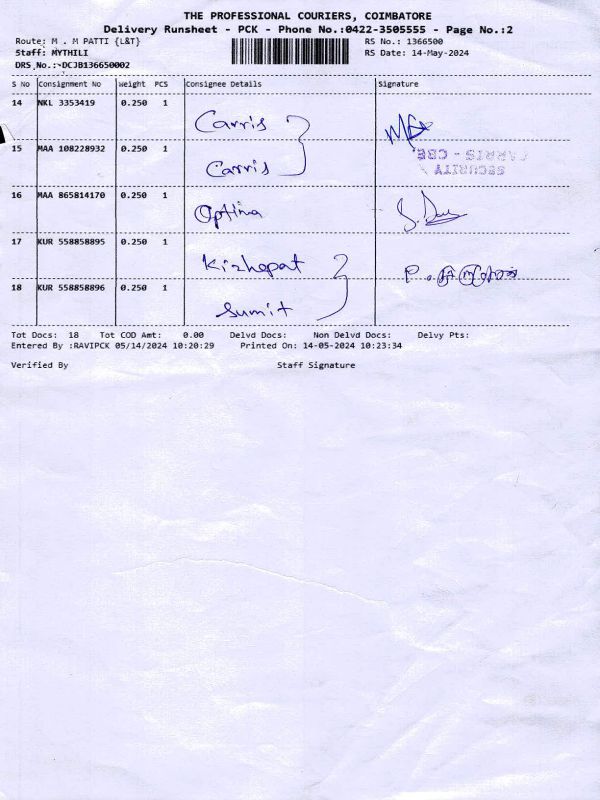 THE PROFESSIONAL COURIERS, COIMBATORE
Delivery Runsheet - PCK - Phone No.:0422-3505555 - Page No.:2
Route: M . M PATTI {L&T} RS No.: 1366500
Staff: MYTHILI RS Date: 14-May-2024
DRS No.:~DCJB136650002
S No Consignment No Weight PCS Consignee Details Signature
14 NKL 3353419 0.250 1 Carris
15 MAA 108228932 0.250 1 Carris
CARRIS - CBE
SECURITY
16 MAA 865814170 0.250 1 Optima
17 KUR 558858895 0.250 1 Kizhepat
18 KUR 558858896 0.250 1 Sumit
Tot Docs: 18 Tot COD Amt: 0.00 Delvd Docs: Non Delvd Docs: Delvy Pts:
Entered By :RAVIPCK 05/14/2024 10:20:29 Printed On: 14-05-2024 10:23:34
Verified By Staff Signature